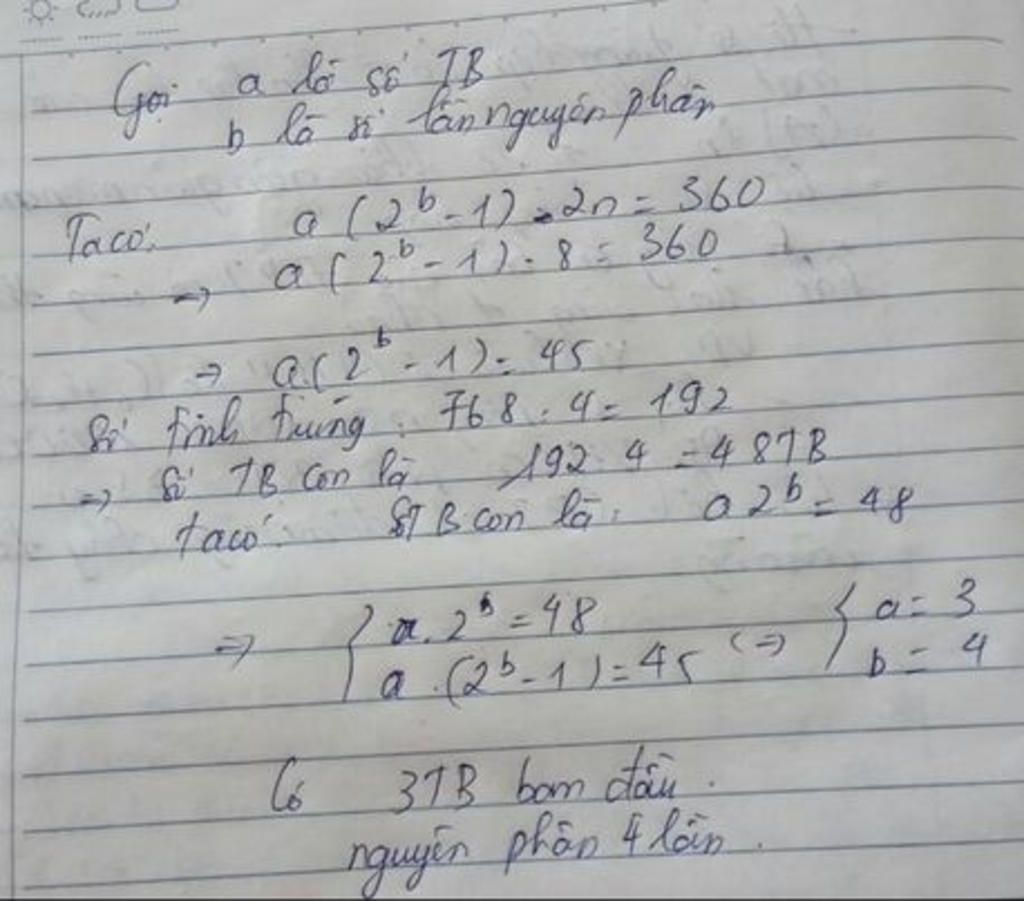 Gọi a là số TB
b là số lần nguyên phân
Ta có: a (2^b - 1) . 2n = 360
=> a (2^b - 1) . 8 = 360
=> a.(2^b - 1) = 45
Số tinh trùng : 768 : 4 = 192
=> Số TB con là 192 : 4 = 48 TB
ta có: STB con là : a 2^b = 48
=> { a. 2^b = 48 <=> { a = 3
a . (2^b - 1) = 45 b = 4
Có 3 TB ban đầu .
nguyên phân 4 lần .